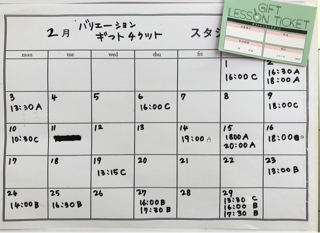 2月 バリエーション
ギフトチケット
スタジ
GIFT
LESSON TICKET
mon tue wed thu fri
1 16:00 C
2 16:30 A
18:00 A
3 13:30 A
4
5
6 16:00 C
7
8
9 18:00 C
10 10:30 C
11
12
13
14 19:00 A
15 18:00 A
20:00 A
16 18:00
17
18
19 13:15 C
20
21
22
23 13:00 B
24 14:00 B
25 16:30 B
26
27 16:00 B
17:30 B
28
29 13:30 C
16:00 B
17:30 B